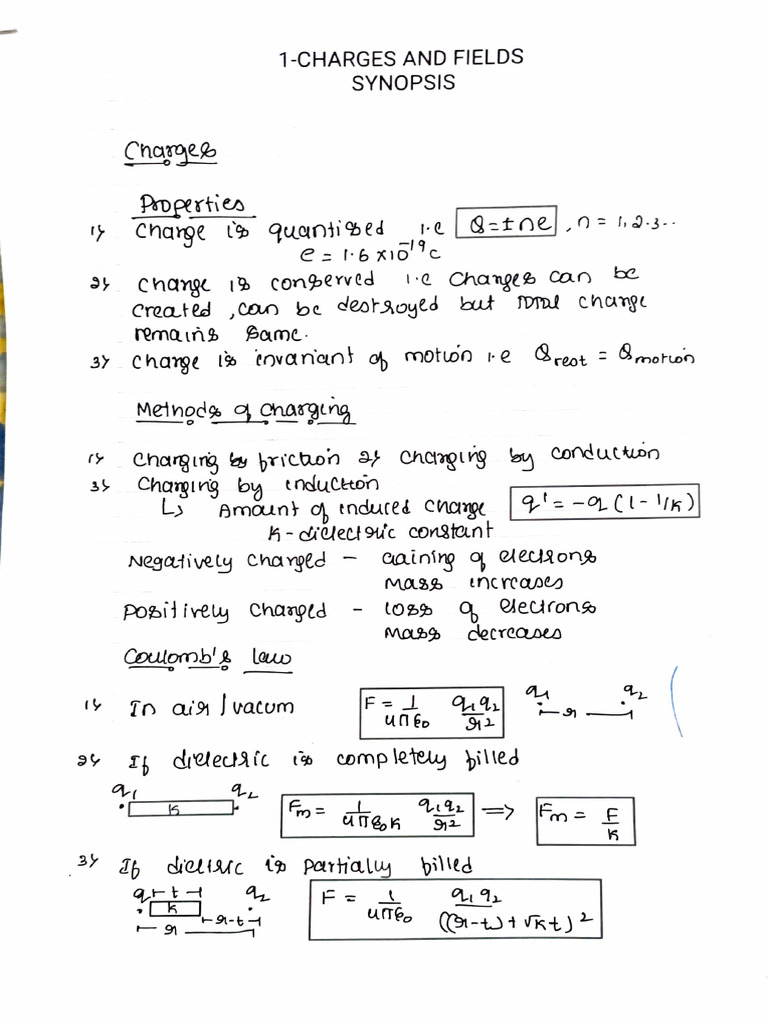 1-CHARGES AND FIELDS
SYNOPSIS
Charges
Properties
1) Charge is quantised i.e Q=±ne , n = 1,2.3..
e = 1.6 ×10⁻¹⁹C
2) Charge is conserved i.e Charges can be
created , can be destroyed but total charge
remains same.
3) Charge is invariant of motion i.e Qrest = Qmotion
Methods of charging
1) Charging by friction 2) Charging by conduction
3) Charging by induction
↳ Amount of induced charge q' = -q (1-1/K)
K-dielectric constant
Negatively charged - Gaining of electrons
Mass increases
Positively charged - Loss of electrons
Mass decreases
Coulomb's law
1) In air / vacum F = 1/4πε₀ q₁q₂/r² q₁ q₂ r
2) If dielectric is completely filled
q₁ K q₂ Fm = 1/4πε₀K q₁q₂/r² ⇒ Fm = F/K
3) If dieltric is partially filled
q t q₂ K r-t r F = 1/4πε₀ q₁q₂/((r-t)+√K t)²